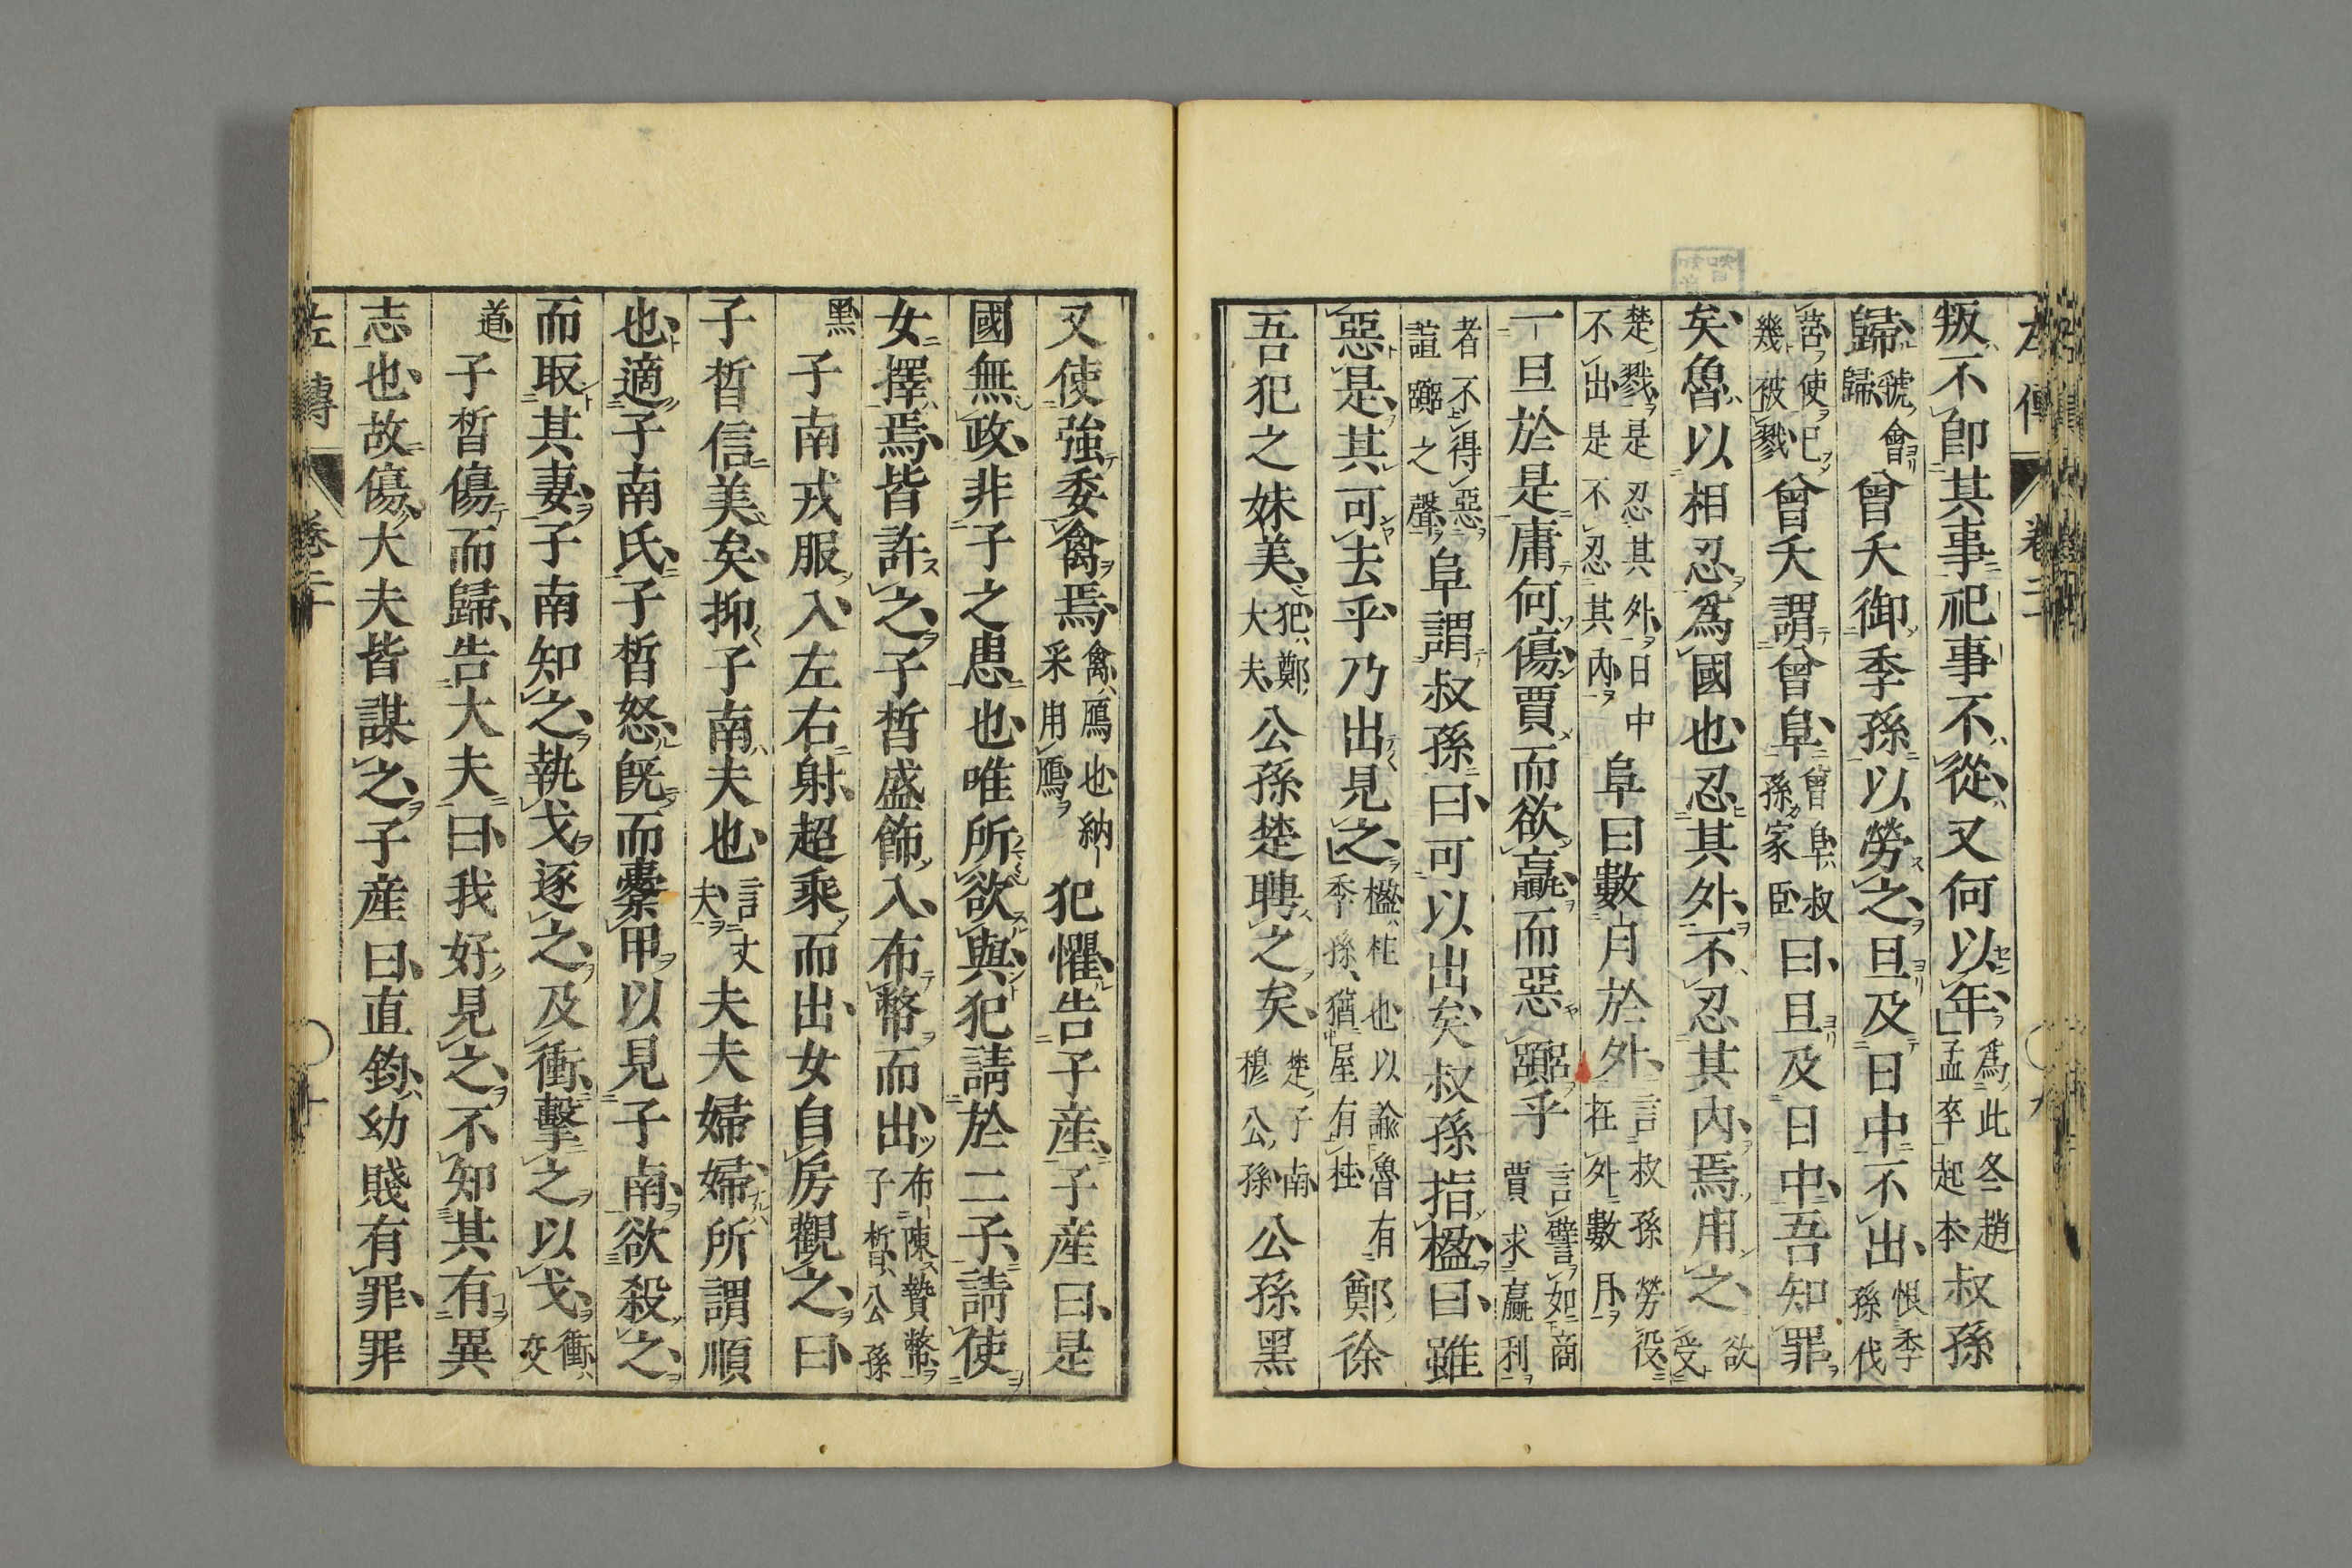 左傳 卷二十
叛不即其事祀事不從又何以年為此冬趙孟卒起本叔孫
歸虢會歸曾夭御季孫以勞之旦及日中不出恨季孫伐
莒使已幾被戮曾夭謂曾阜曾阜叔孫家臣曰旦及日中吾知罪
矣魯以相忍爲國也忍其外不忍其内焉用之欲受
楚戮是忍其外日中不出是不忍其内阜曰數月於外言叔孫勞役在外數月
一旦於是庸何傷賈而欲贏而惡嚻乎言譬如商賈求贏利
者不得惡諠嚻之聲阜謂叔孫曰可以出矣叔孫指楹曰雖
惡是其可去乎乃出見之楹柱也以諭魯有季孫猶屋有柱鄭徐
吾犯之妹美犯鄭大夫公孫楚聘之矣楚子南穆公孫公孫黑
又使強委禽焉禽鴈也納采用鴈犯懼告子産子産曰是
國無政非子之患也唯所欲與犯請於二子請使
女擇焉皆許之子晳盛飾入布幣而出布陳贄幣子晳公孫
黑子南戎服入左右射超乘而出女自房觀之曰
子晳信美矣抑子南夫也言丈夫夫夫婦婦所謂順
也適子南氏子晳怒既而櫜甲以見子南欲殺之
而取其妻子南知之執戈逐之及衝擊之以戈衝交
道子晳傷而歸告大夫曰我好見之不知其有異
志也故傷大夫皆謀之子産曰直鈞幼賤有罪罪
左傳 卷二十 十